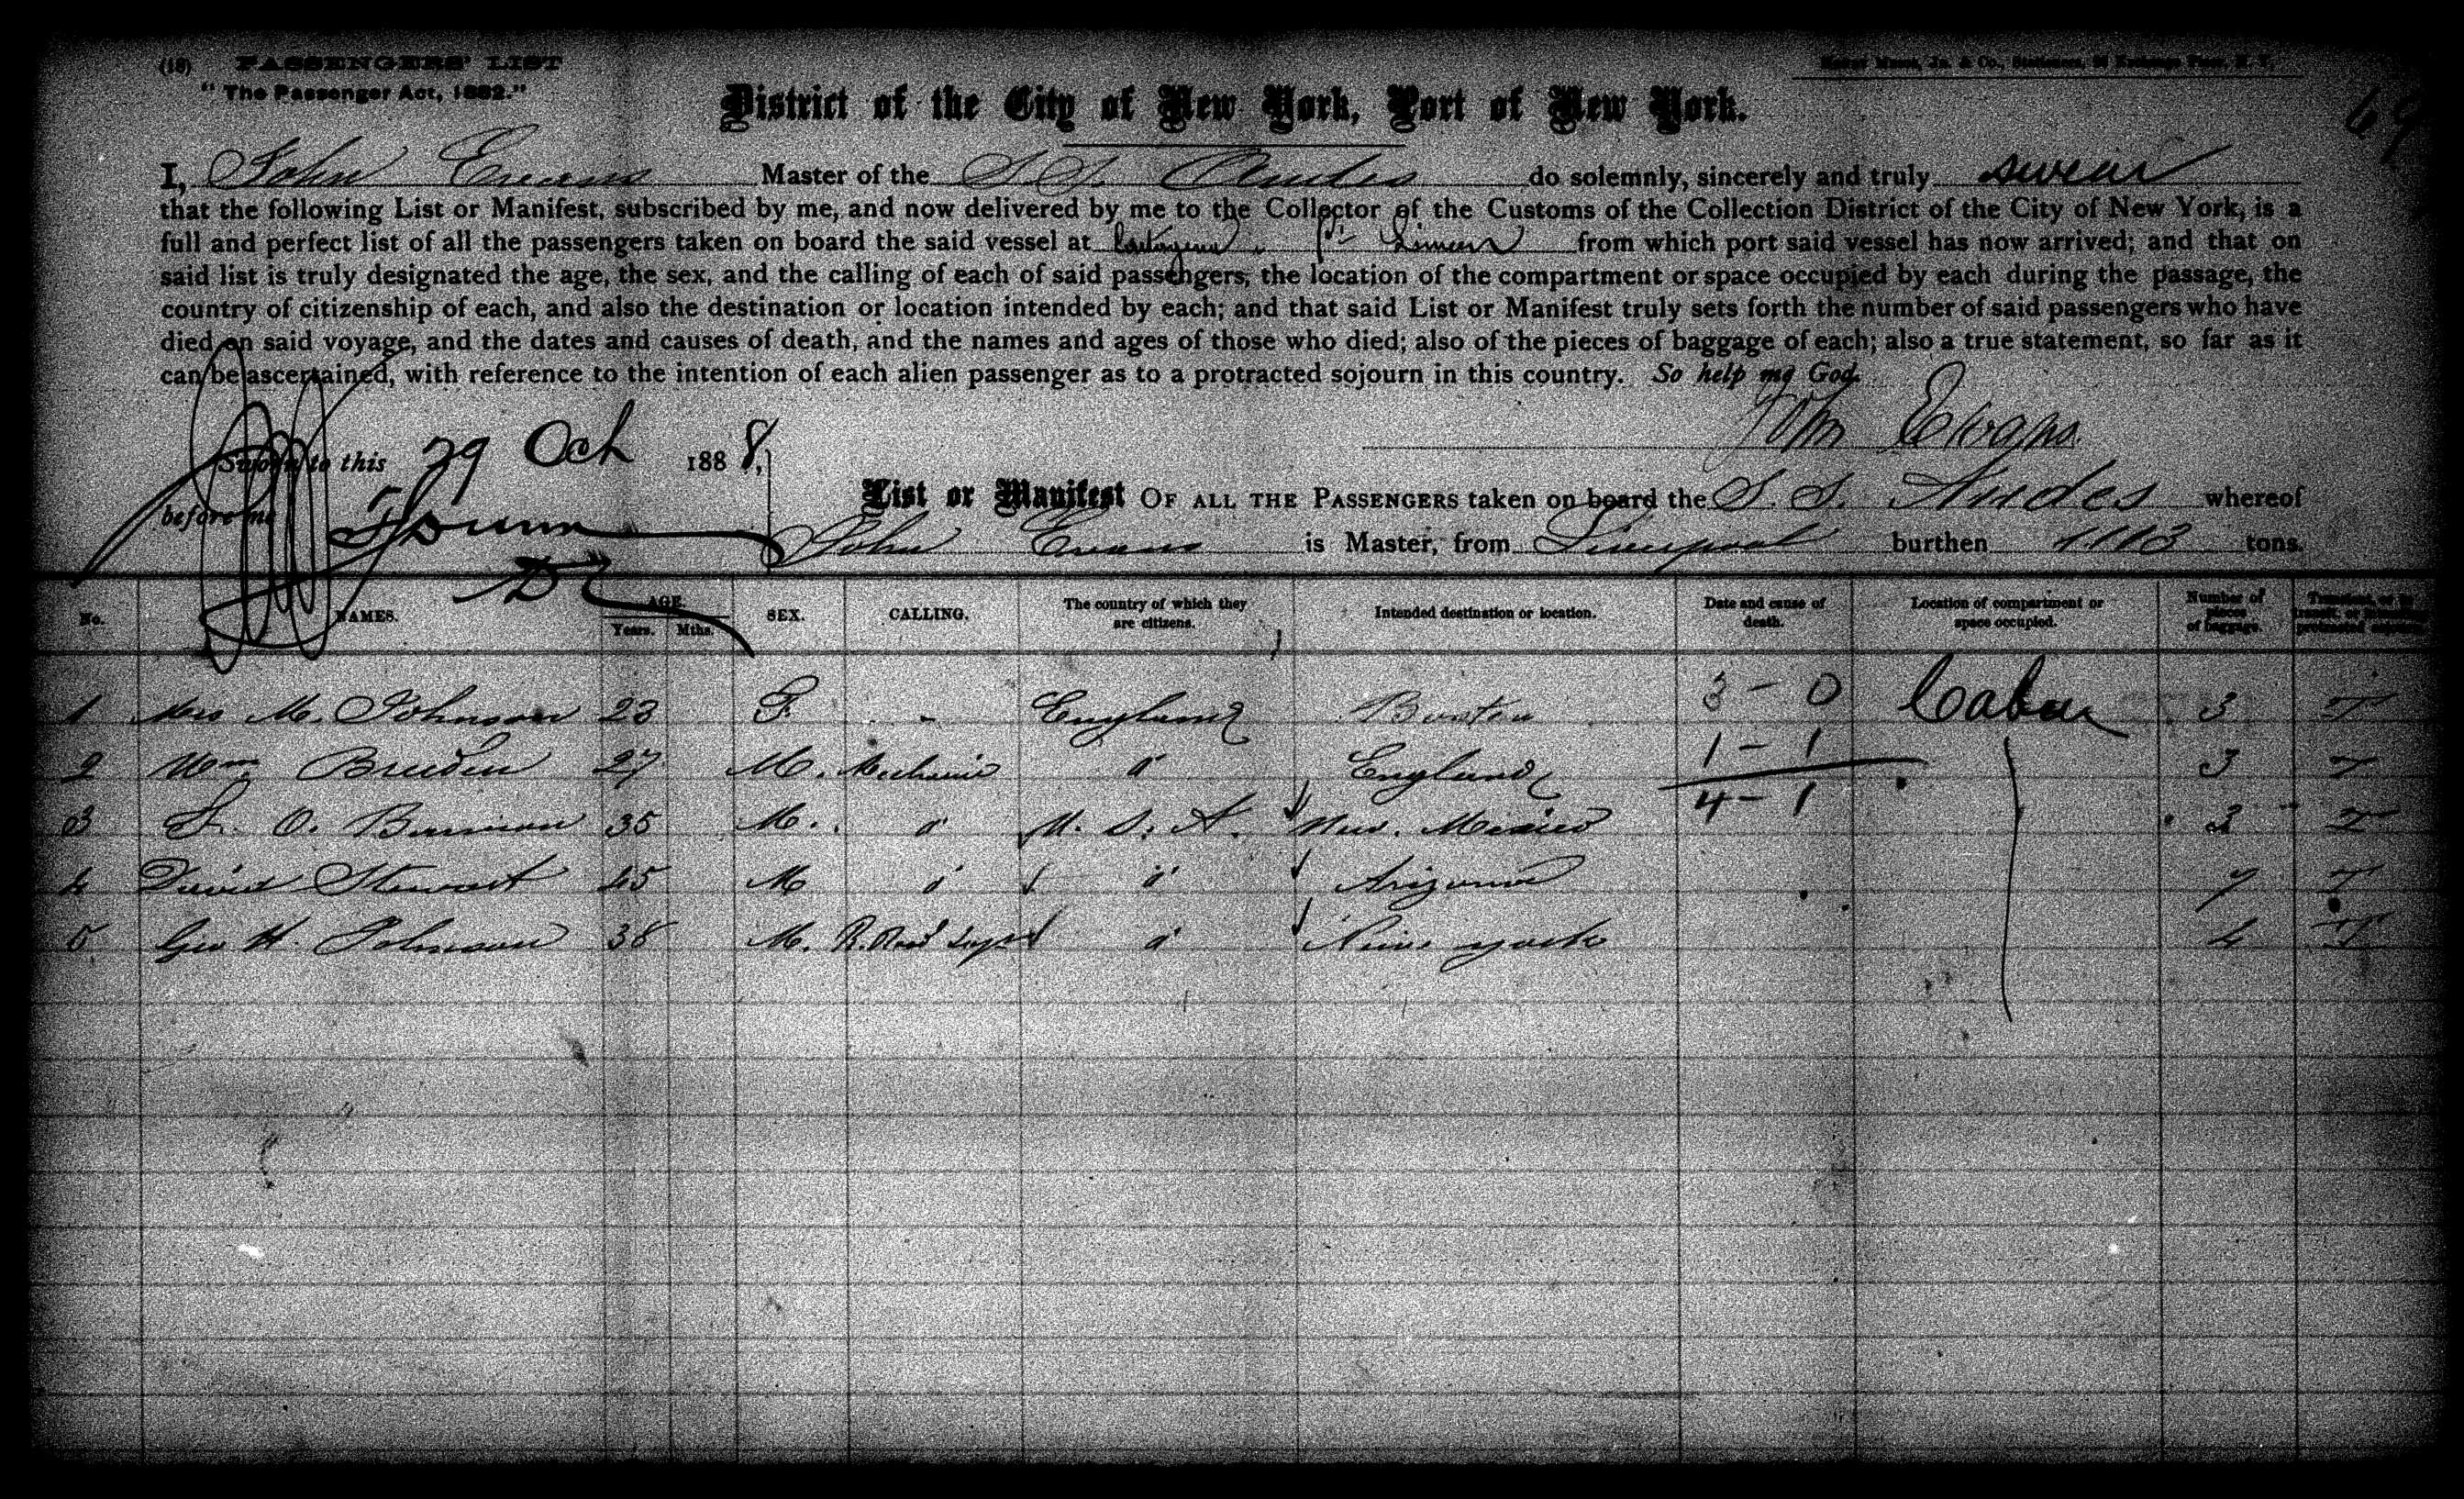 (18) PASSENGERS' LIST
"The Passenger Act, 1882."
District of the City of New York, Port of New York.
69
I, John Evans Master of the S.S. Andes do solemnly, sincerely and truly swear
that the following List or Manifest, subscribed by me, and now delivered by me to the Collector of the Customs of the Collection District of the City of New York, is a
full and perfect list of all the passengers taken on board the said vessel at from which port said vessel has now arrived; and that on
said list is truly designated the age, the sex, and the calling of each of said passengers, the location of the compartment or space occupied by each during the passage, the
country of citizenship of each, and also the destination or location intended by each; and that said List or Manifest truly sets forth the number of said passengers who have
died on said voyage, and the dates and causes of death, and the names and ages of those who died; also of the pieces of baggage of each; also a true statement, so far as it
can be ascertained, with reference to the intention of each alien passenger as to a protracted sojourn in this country. So help me God.
Jhn Evans
Sworn to this 29 Oct 1888,
before me
List or Manifest OF ALL THE PASSENGERS taken on board the S. S. Andes whereof
John Evans is Master, from Liverpool burthen 1113 tons.
No. NAMES. AGE. Years. Mths. SEX. CALLING. The country of which they are citizens. Intended destination or location. Date and cause of death. Location of compartment or space occupied. Number of pieces of baggage.
1 Mrs M. Johnson 23 F. - England 3 - 0 Cabin 3 T
2 Wm Breeden 27 M. Mechanic " England 1 - 1 3 T
3 O. 35 M. " U. S. A. New Mexico 4 - 1 3 T
4 David Stewart 45 M " " Arizona 7 T
5 Geo H. Johnson 38 M. R. Road Supt " New York 4 T